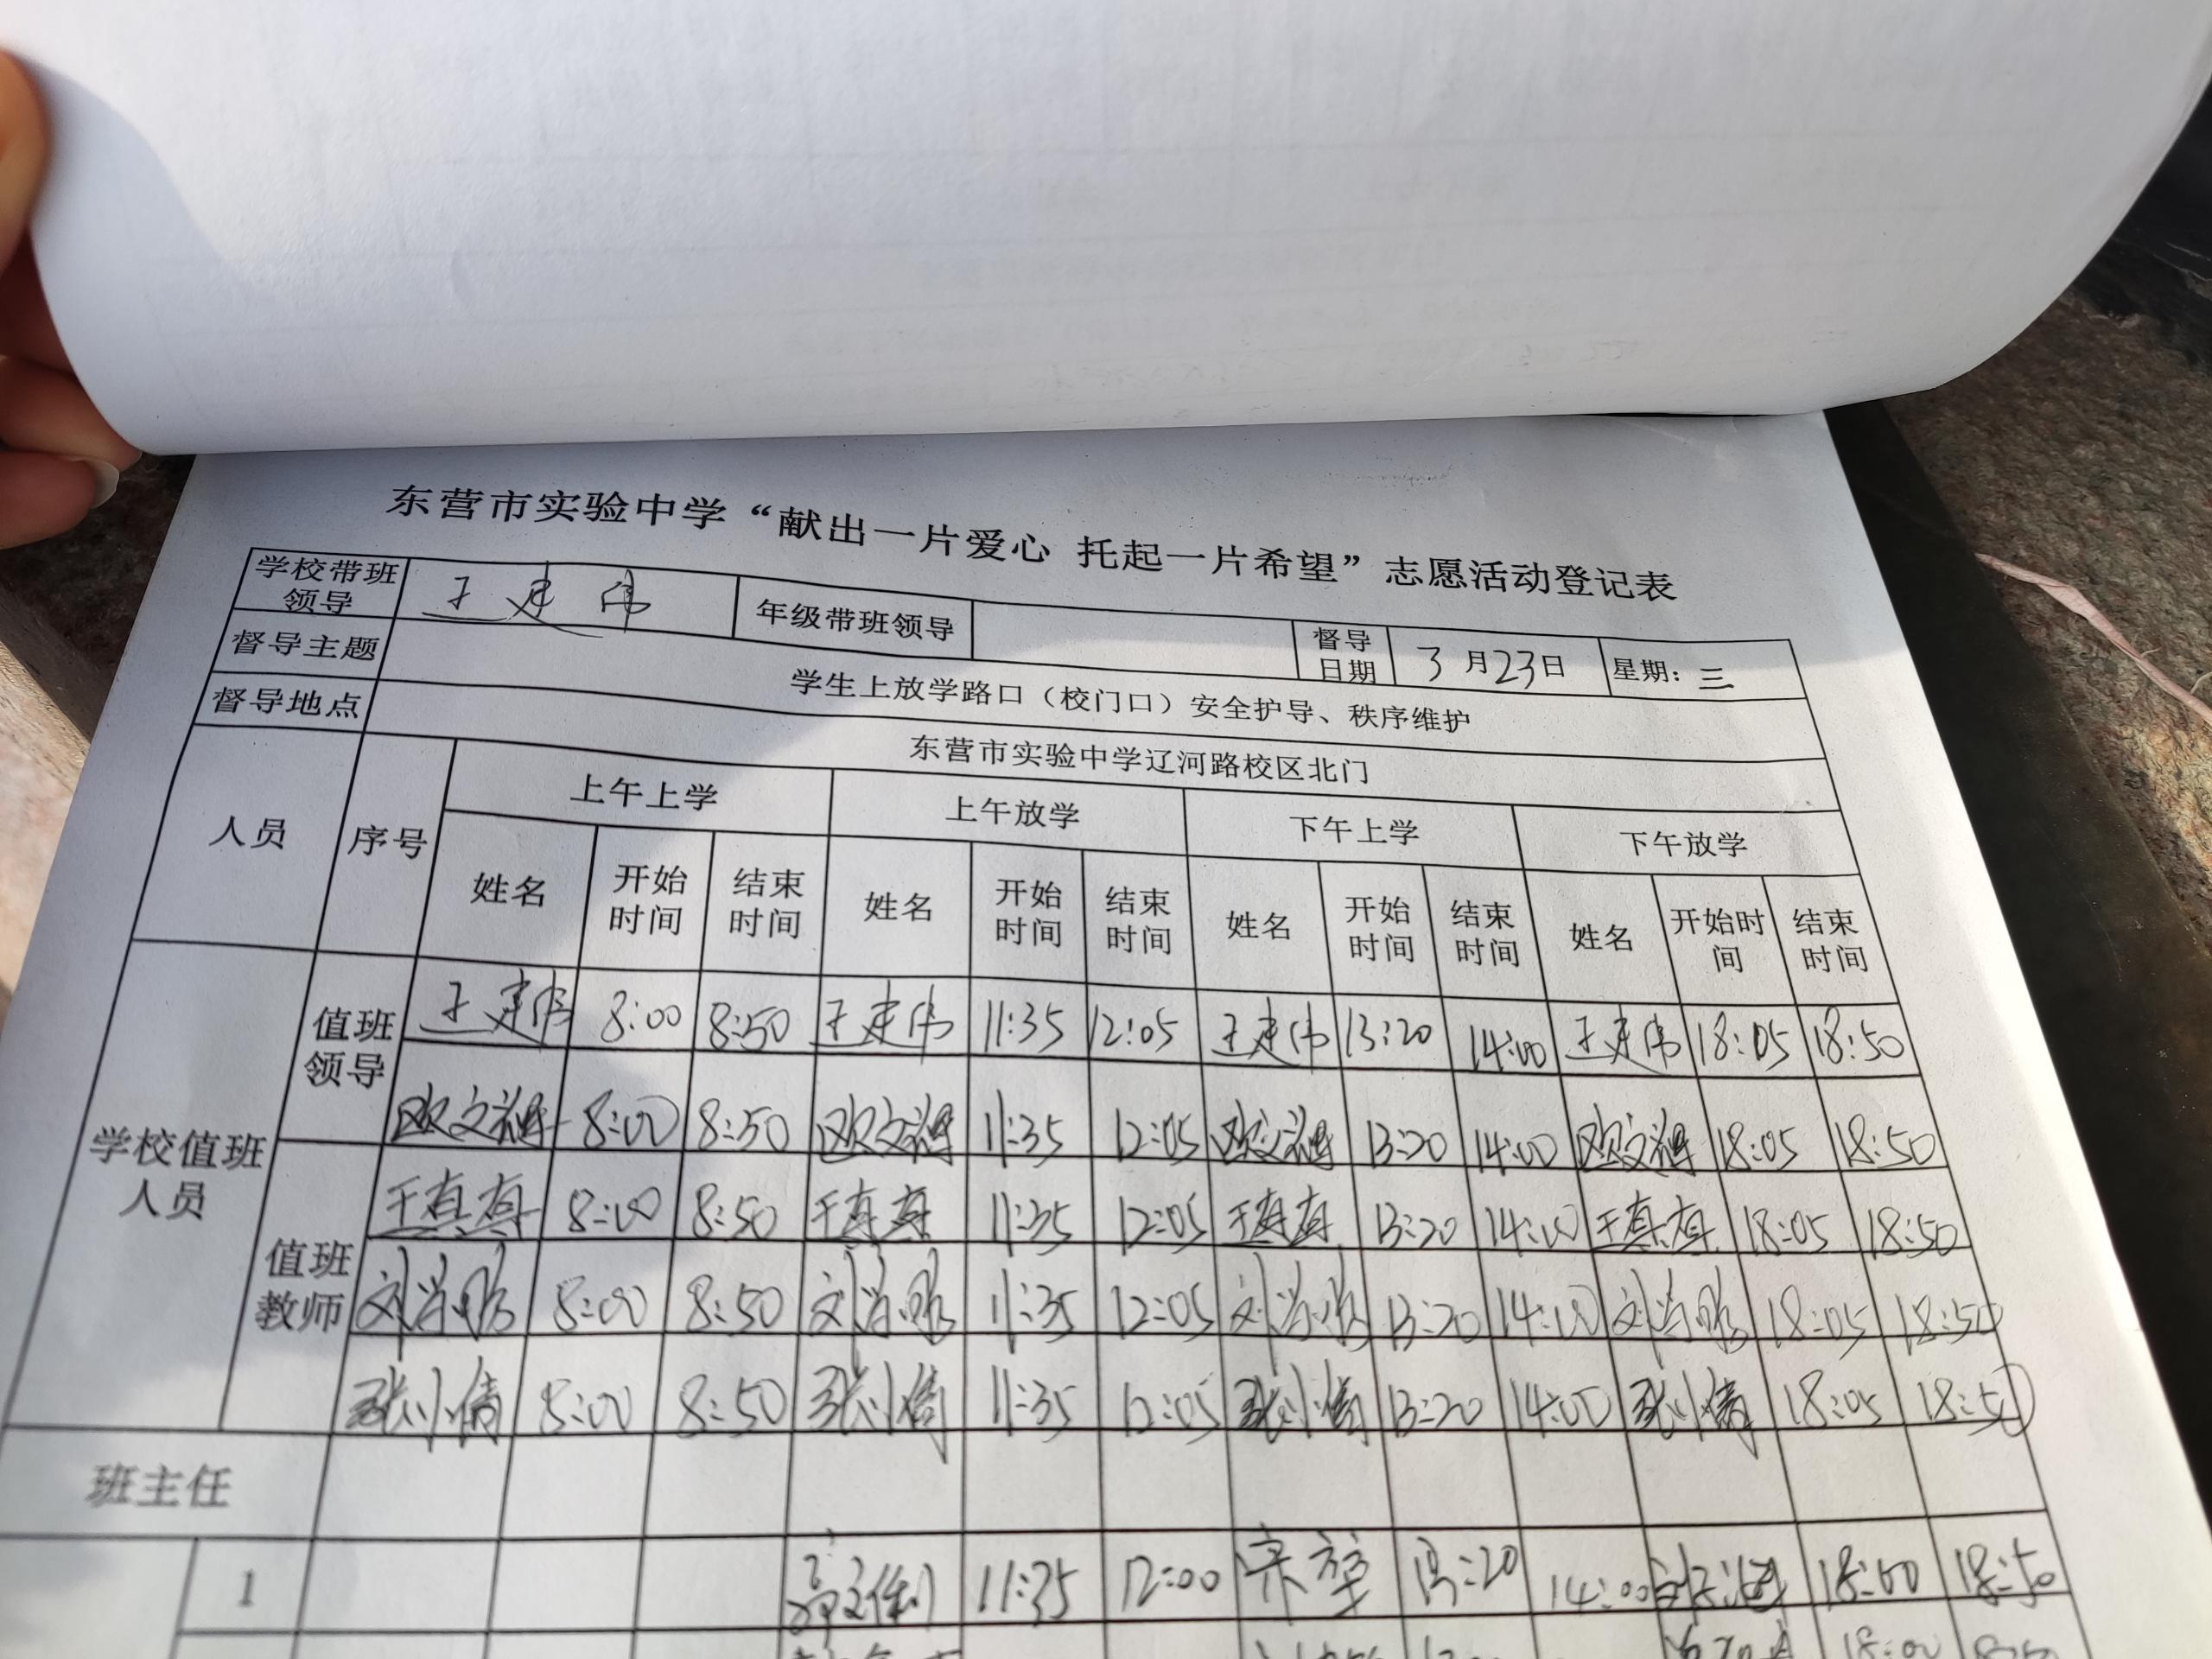 东营市实验中学“献出一片爱心 托起一片希望”志愿活动登记表
学校带班领导 王建伟 年级带班领导 督导日期 3月23日 星期：三
督导主题 学生上放学路口（校门口）安全护导、秩序维护
督导地点 东营市实验中学辽河路校区北门
人员 序号 上午上学 上午放学 下午上学 下午放学
姓名 开始时间 结束时间 姓名 开始时间 结束时间 姓名 开始时间 结束时间 姓名 开始时间 结束时间
学校值班人员
值班领导 王建伟 8:00 8:50 王建伟 11:35 12:05 王建伟 13:20 14:00 王建伟 18:05 18:50
8:00 8:50 11:35 12:05 13:20 14:00 18:05 18:50
值班教师 王真真 8:00 8:50 王真真 11:35 12:05 王真真 13:20 14:00 王真真 18:05 18:50
8:00 8:50 11:35 12:05 13:20 14:00 18:05 18:50
张小倩 8:00 8:50 张小倩 11:35 12:05 张小倩 13:20 14:00 张小倩 18:05 18:50
班主任
1 11:35 12:00 13:20 14:00 18:50